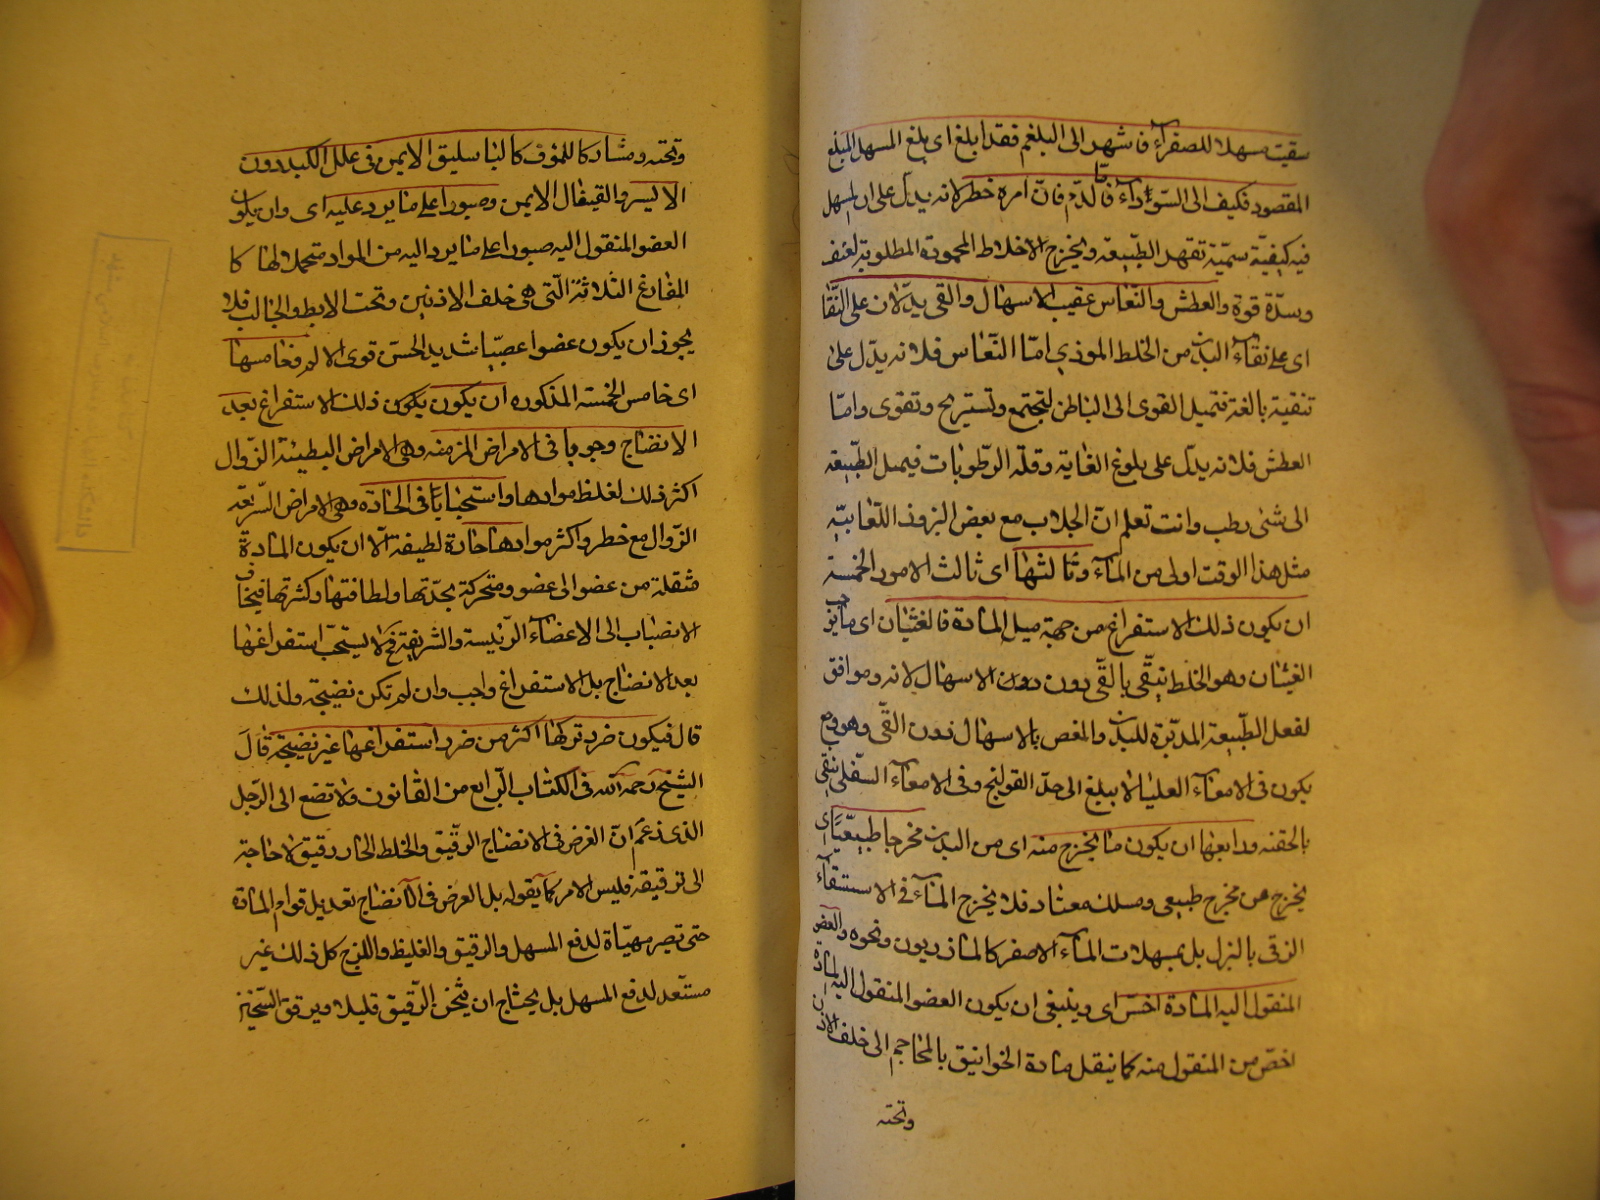 سقيت مسهلا للصفرآء فاسهل الى البلغم فقد ابلغ اى بلغ المسهل المبلغ
المقصود فكيف الى السّودآء فاما الدّم فانّ امره خطر لانه يدلّ على ان المسهل
فيه كيفيّة سمّية تقهر الطّبيعة ويخرج الاخلاط المحمودة المطلوبة لعنف
وشدّة قوة والعطش والنّعاس عقيب الاسهال والقى يدلّان على النّقا
اى على نقآء البدن من الخلط الموذي امّا النّعاس فلانه يدلّ على
تنقية بالغة فتميل القوى الى الباطن لتجتمع وتستريح وتقوى وامّا
العطش فلانه يدلّ على بلوغ الغاية وقلّة الرّطوبات فيميل الطّبيعة
الى شئ رطب وانت تعلم انّ الجلاب مع بعض البزور اللّعابيّة
مثل هذا الوقت اولى من المآء وثالثها اى ثالث الامور الخمسة
ان يكون ذلك الاستفراغ من جهة ميل المادة فالغثيان اى ما يوجب
الغثيان وهو الخلط ينقّى بالقّى دون دون الاسهال لانه موافق
لفعل الطّبيعة المدبّرة للبدن والمغص بالاسهال دون القّى وهو وجع
يكون فى الامعآء العليا لا يبلغ الى حدّ القولنج وفى الامعآء السّفلى ينقى
بالحقنه ورابعها ان يكون ما يخرج منه اى من البدن مخرجا طبيعيّا اى
يخرج من مخرج طبيعى ومسلك معتاد فلا يخرج المآء فى الاستسقآء
الزقى بالبزل بل بمسهلات المآء الاصفر كالماذريون ونحوه والعضو
المنقول اليه المادة اخسّ اى وينبغى ان يكون العضو المنقول اليه المادة
اخسّ من المنقول منه كما ينقل مادة الخوانيق بالمحاجم الى خلف الاذن
وتحته
وتحته ومشاركا للمؤف كالباسليق الايمن فى علل الكبد دون
الايسر والقيفال الايمن وصبورا على ما يرد عليه اى وان يكون
العضو المنقول اليه صبورا على ما يرد اليه من المواد متحملا لها كا
المفارغ الثلاثة الّتى هى خلف الاذنين وتحت الابط والحالب فلا
يجوز ان يكون عضوا عصبيّا شديد الحسّ قوى الالم وخامسها
اى خامس الخمسة المذكوره ان يكون يكون ذلك الاستفراغ بعد
الانضاج وجوبا فى الامراض المزمنه وهى الامراض البطيئة الزّوال
اكثر ذلك لغلظ موادها واستحبابا فى الحادة وهى الامراض السّريعة
الزّوال مع خطر واكثر موادها حارة لطيفة الا ان يكون المادة
منتقلة من عضو الى عضو ومتحركة بحدّتها ولطافتها وكثرتها فيخاف
الانصباب الى الاعضآء الرّئيسة والشريفة فح لا يستحبّ استفراغها
بعد الانضاج بل الاستفراغ واجب وان لم تكن نضيجة ولذلك
قال فيكون ضرر تركها اكثر من ضرر استفراغها غير نضيجة قال
الشيخ رحمه اللّه فى الكتاب الرّابع من القانون ولا تصغ الى الرّجل
الذى زعم انّ الغرض فى الانضاج الترقيق والخلط الحار رقيق لا حاجة
الى ترقيقه فليس الامر كما يقوله بل الغرض فى الانضاج تعديل قوام المادة
حتى تصير مهيّاة لدفع المسهل والرقيق والغليظ واللزج كل ذلك غير
مستعّد لدفع المسهل بل يحتاج ان يثخن الرّقيق قليلا ويرقق الثّخين